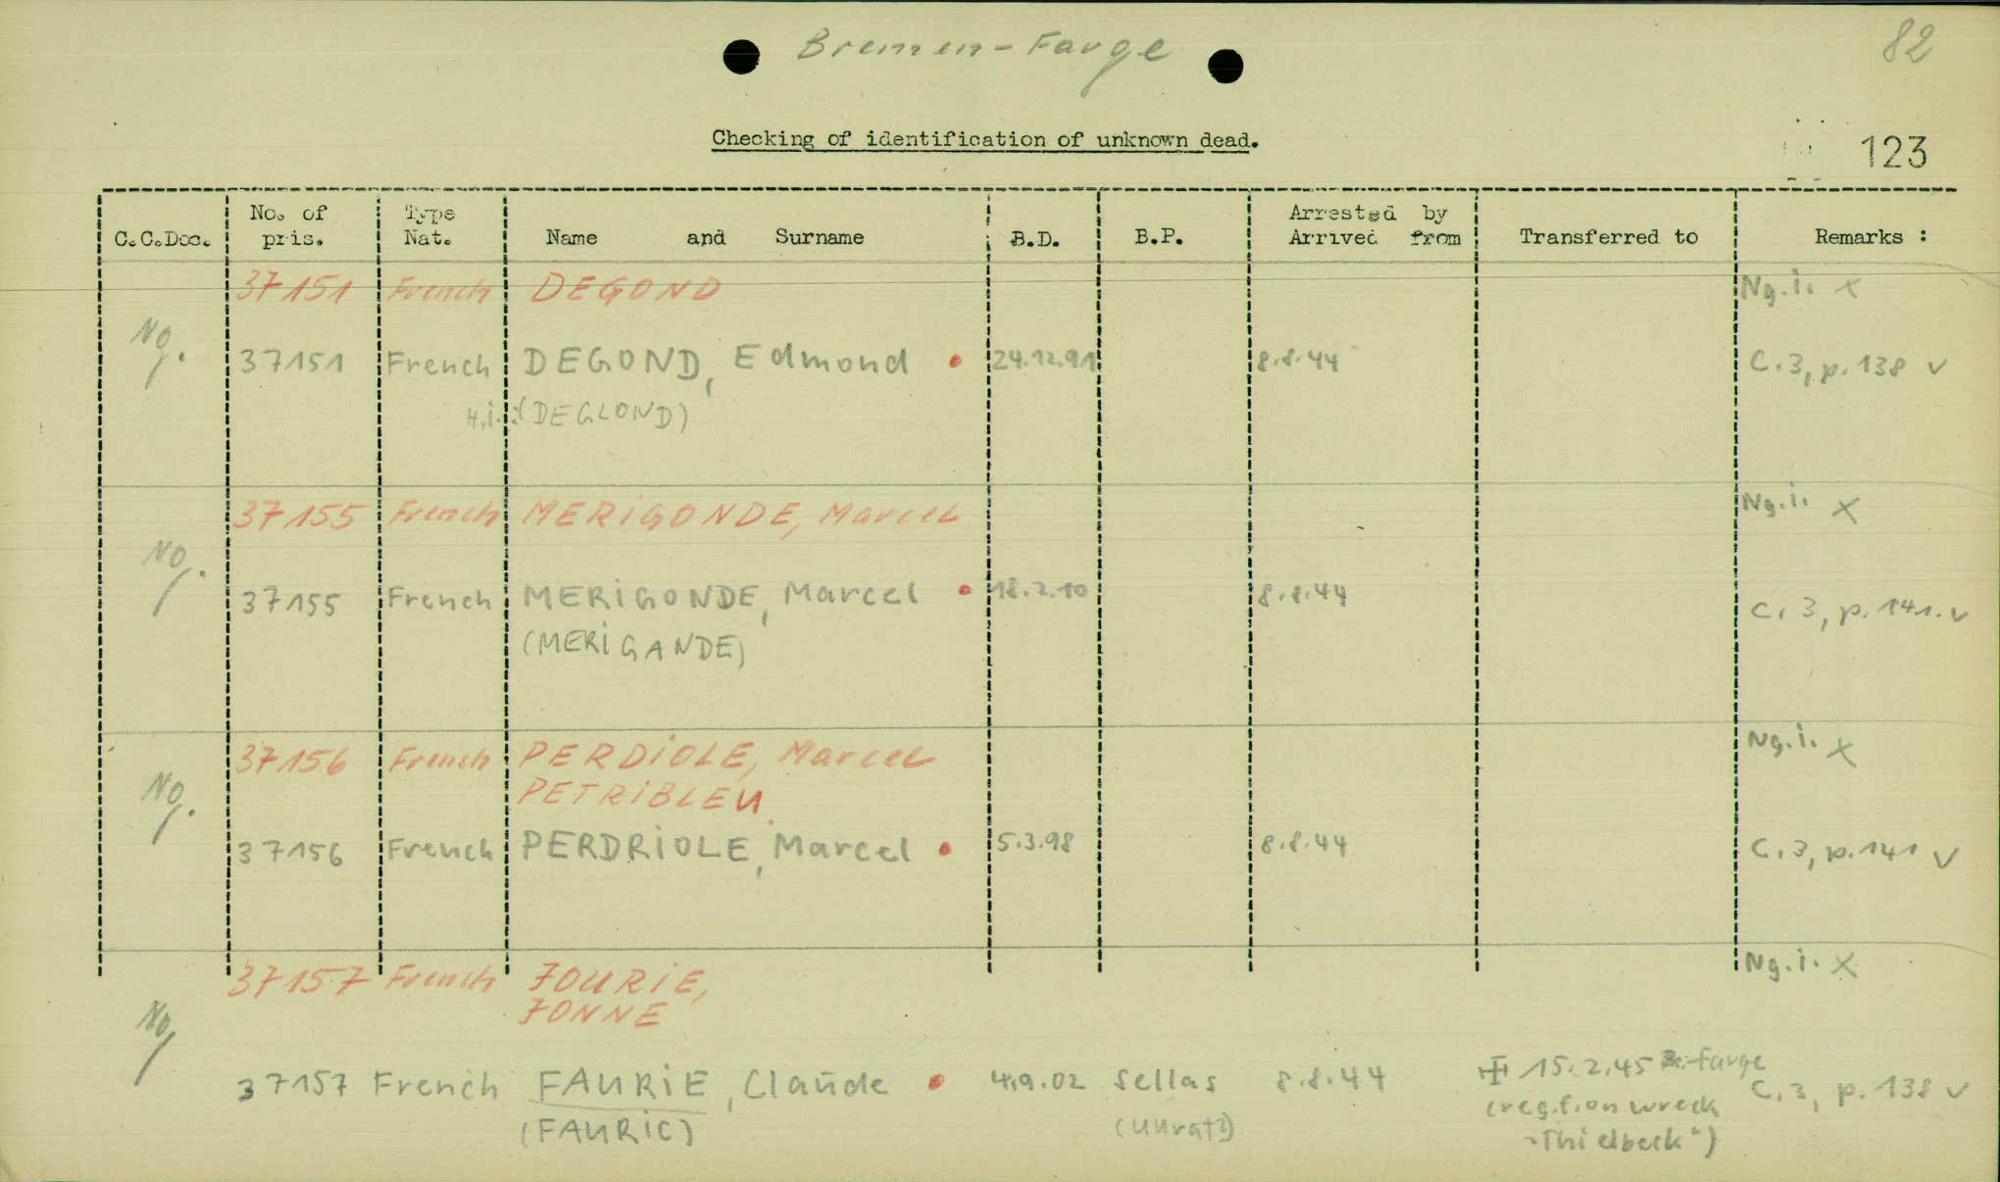 Bremen-Farge
82
Checking of identification of unknown dead.
123
C.C.Doc. No. of pris. Type Nat. Name and Surname B.D. B.P. Arrested by Arrived from Transferred to Remarks :
37151 French DEGOND Ng.i. x
No.
37151 French DEGOND, Edmond 24.12.91 8.8.44 C.3, p.138 v
H.i.:(DEGLOND)
37155 French MERIGONDE, Marcel Ng.i. x
No.
37155 French MERIGONDE, Marcel 18.2.10 8.8.44 C.3, p.141. v
(MERIGANDE)
37156 French PERDIOLE, Marcel Ng.i. x
PETRIBLEU
No.
37156 French PERDRIOLE, Marcel 5.3.98 8.8.44 C.3, p.141 v
37157 French FOURIE, Ng.i. x
FONNE
No
37157 French FAURIE, Claude 4.9.02 Sellas 8.8.44 15.2.45 Farge C.3, p.138 v
(FAURIC) (reg.f. on wreck
"Thielbeck")